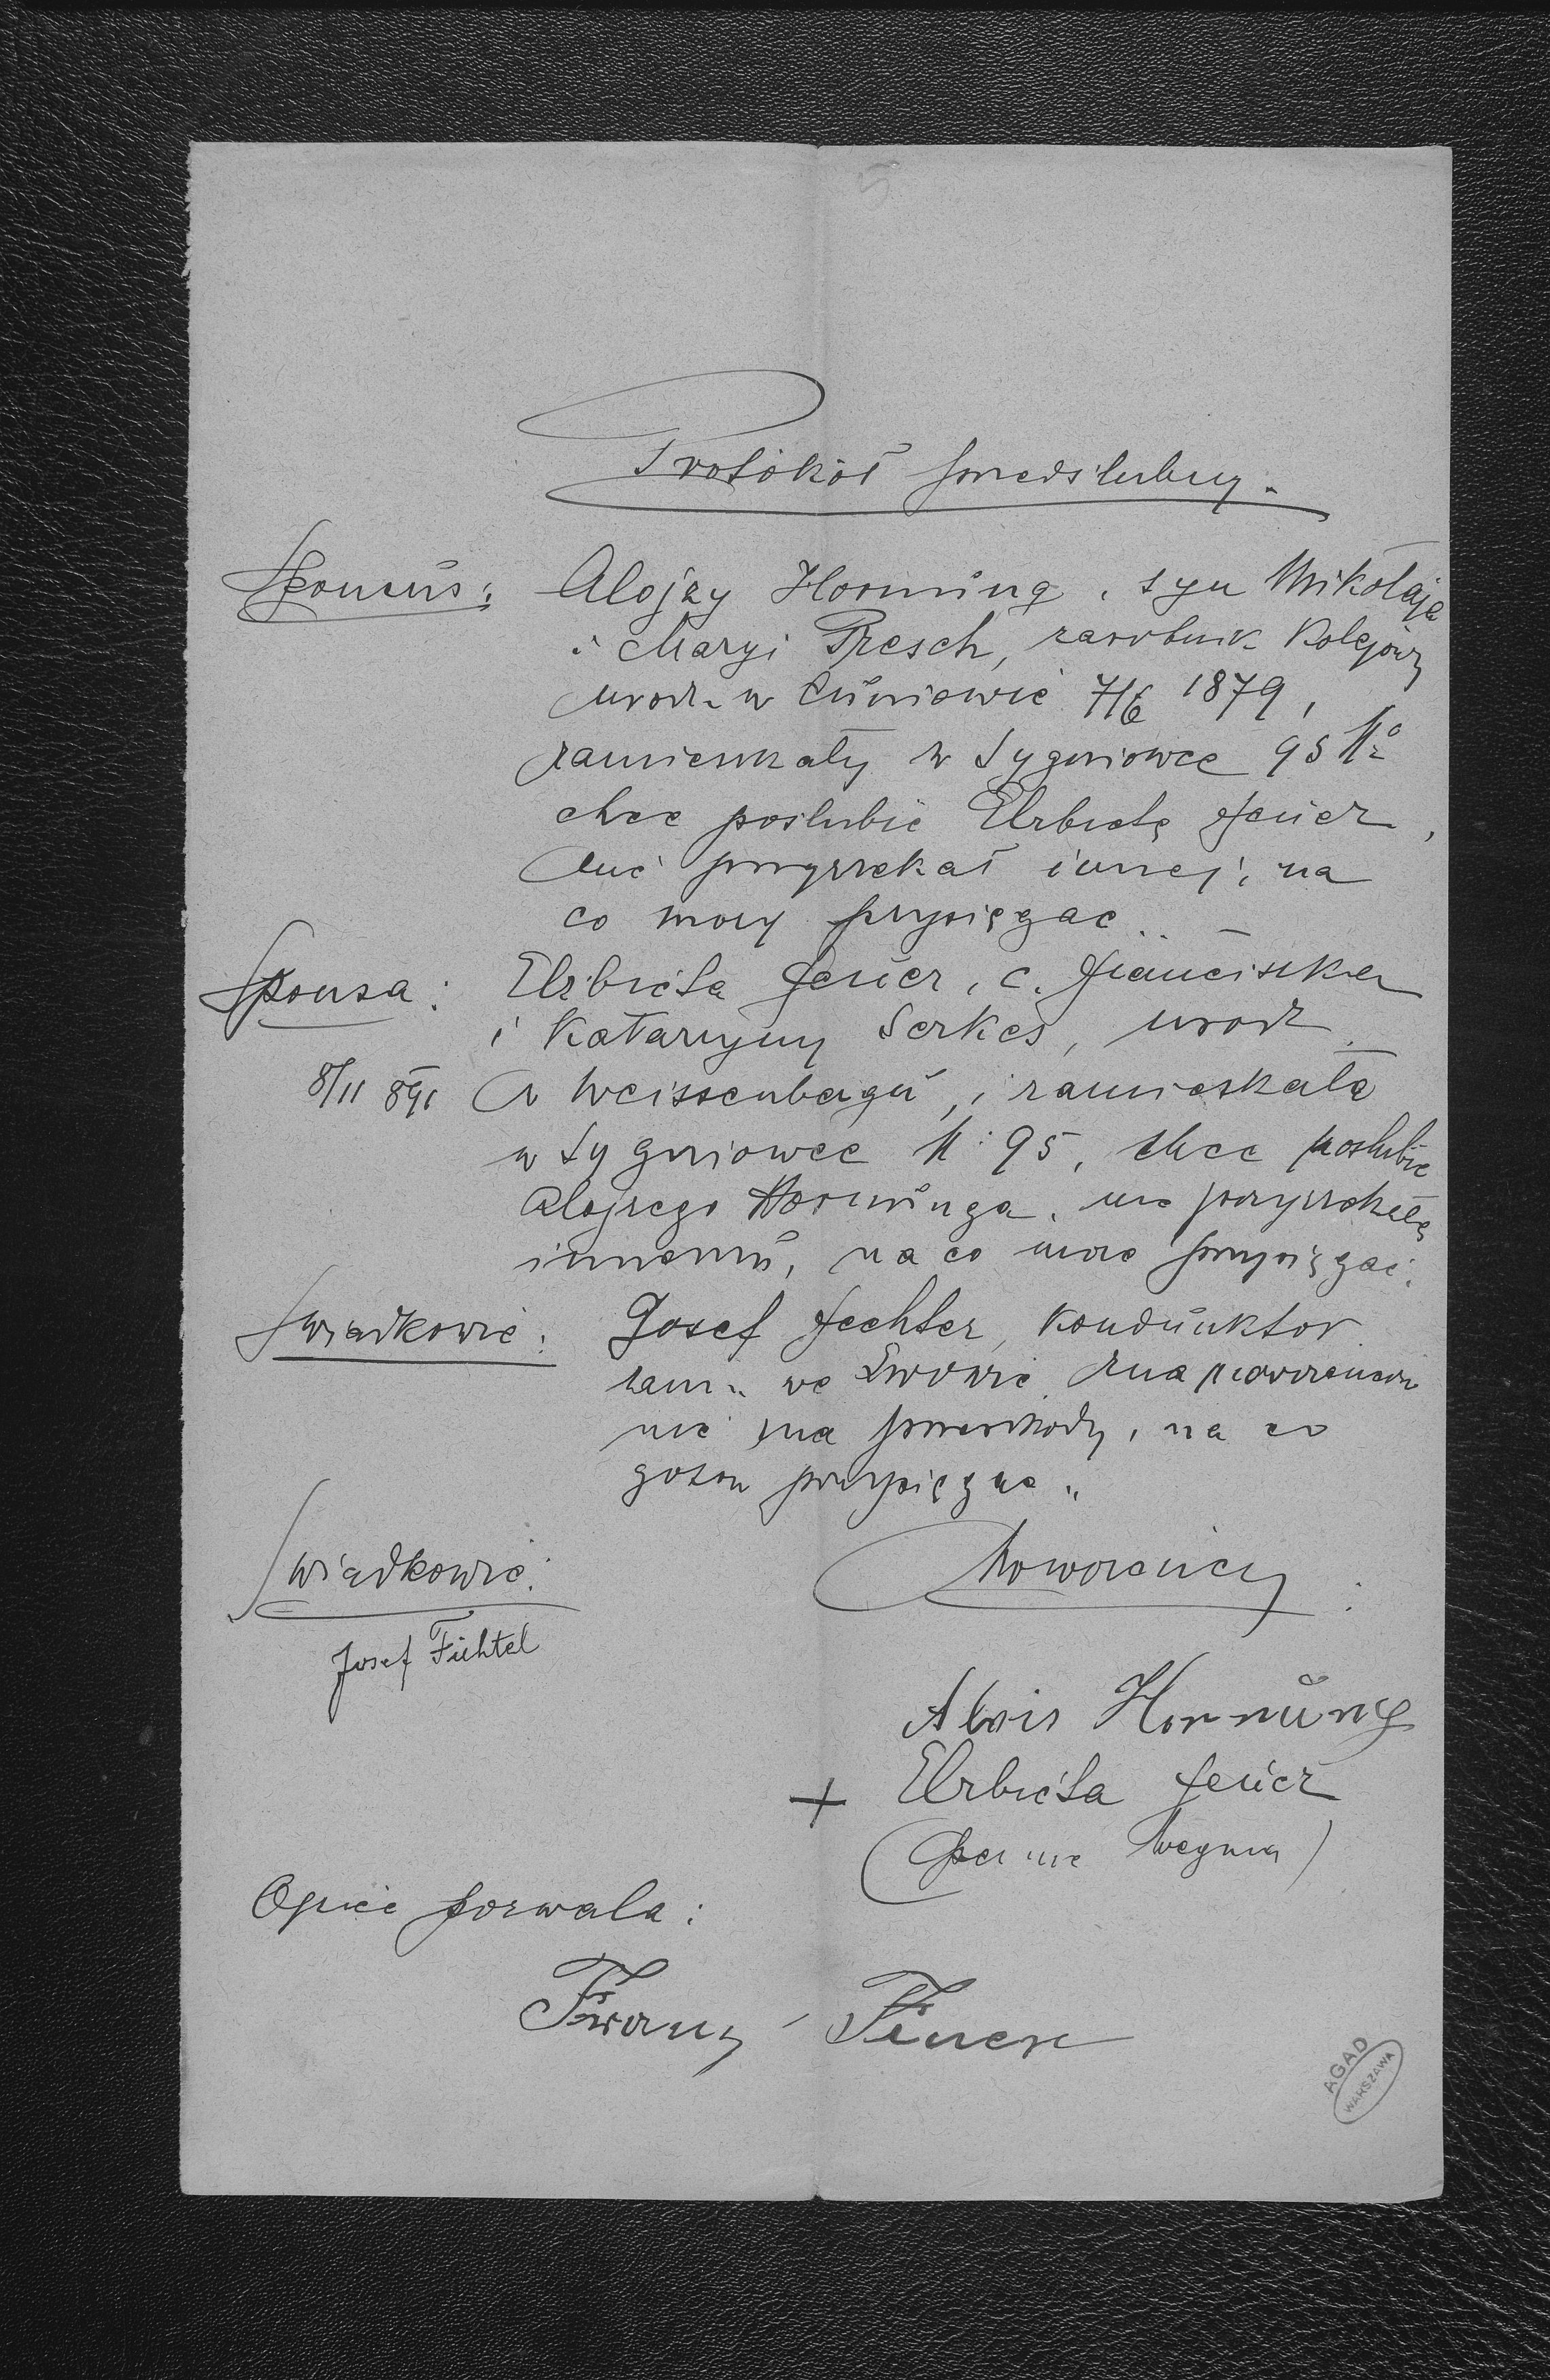 Protokół przedślubny.
Sponsus: Alojzy Hornung, syn Mikołaja
i Maryi Presch, zarobnik kolejowy
urodz. w 7/6 1879,
zamieszkały w Sygniowce 95 No
chce poślubić Elzbietę Feuer,
nie przyrzekał innej, na
co może przysięgac..
Sponsa: Elzbieta Feuer, c. Franciszka
i Katarzyny Serkes, urodz.
8/11 891 w Weissenbergu, i zamieszkała
w Sygniowce N: 95, chce poslubic
Alojzego Hornunga, nie przyrzekała
innemu, na co może przysięgać.
Świadkowie: Josef Fechter, konduktor
zam. we Lwowie zna
nie ma przeszkody, na co
gotow przysięgac.
Świadkowie: Nowożeńcy:
Josef Fichtel
Alois Hornung
+ Elzbieta Feuer
Ojciec pozwala:
Franz
AGAD
WARSZAWA